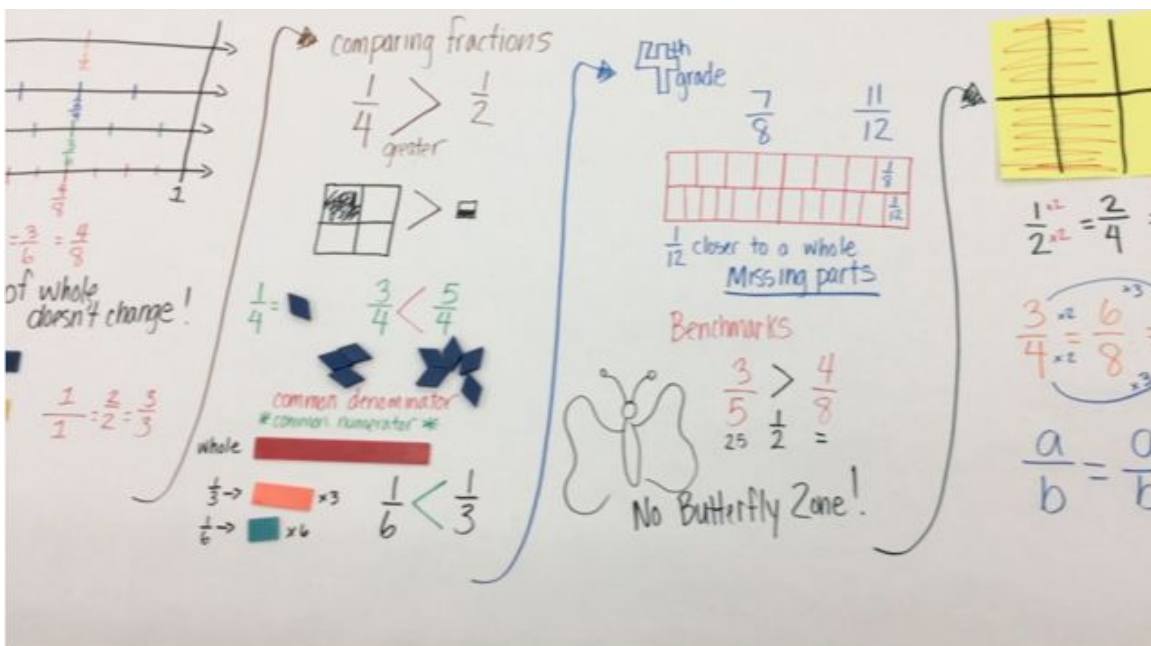 1
= 3/6 = 4/8
of whole
doesn't change!
1/1 = 2/2 = 3/3
comparing fractions
1/4 > 1/2
greater
>
1/4 =
3/4 < 5/4
common denominator
*common numerator*
whole
1/3 → x3
1/6 → x6
1/6 < 1/3
4th
grade
7/8 11/12
1/8
1/12
1/12 closer to a whole
Missing parts
Benchmarks
3/5 > 4/8
25 1/2 =
No Butterfly Zone!
1/2 x2 x2 = 2/4 =
3/4 x2 x2 = 6/8 x3 x3 =
a/b = a/b